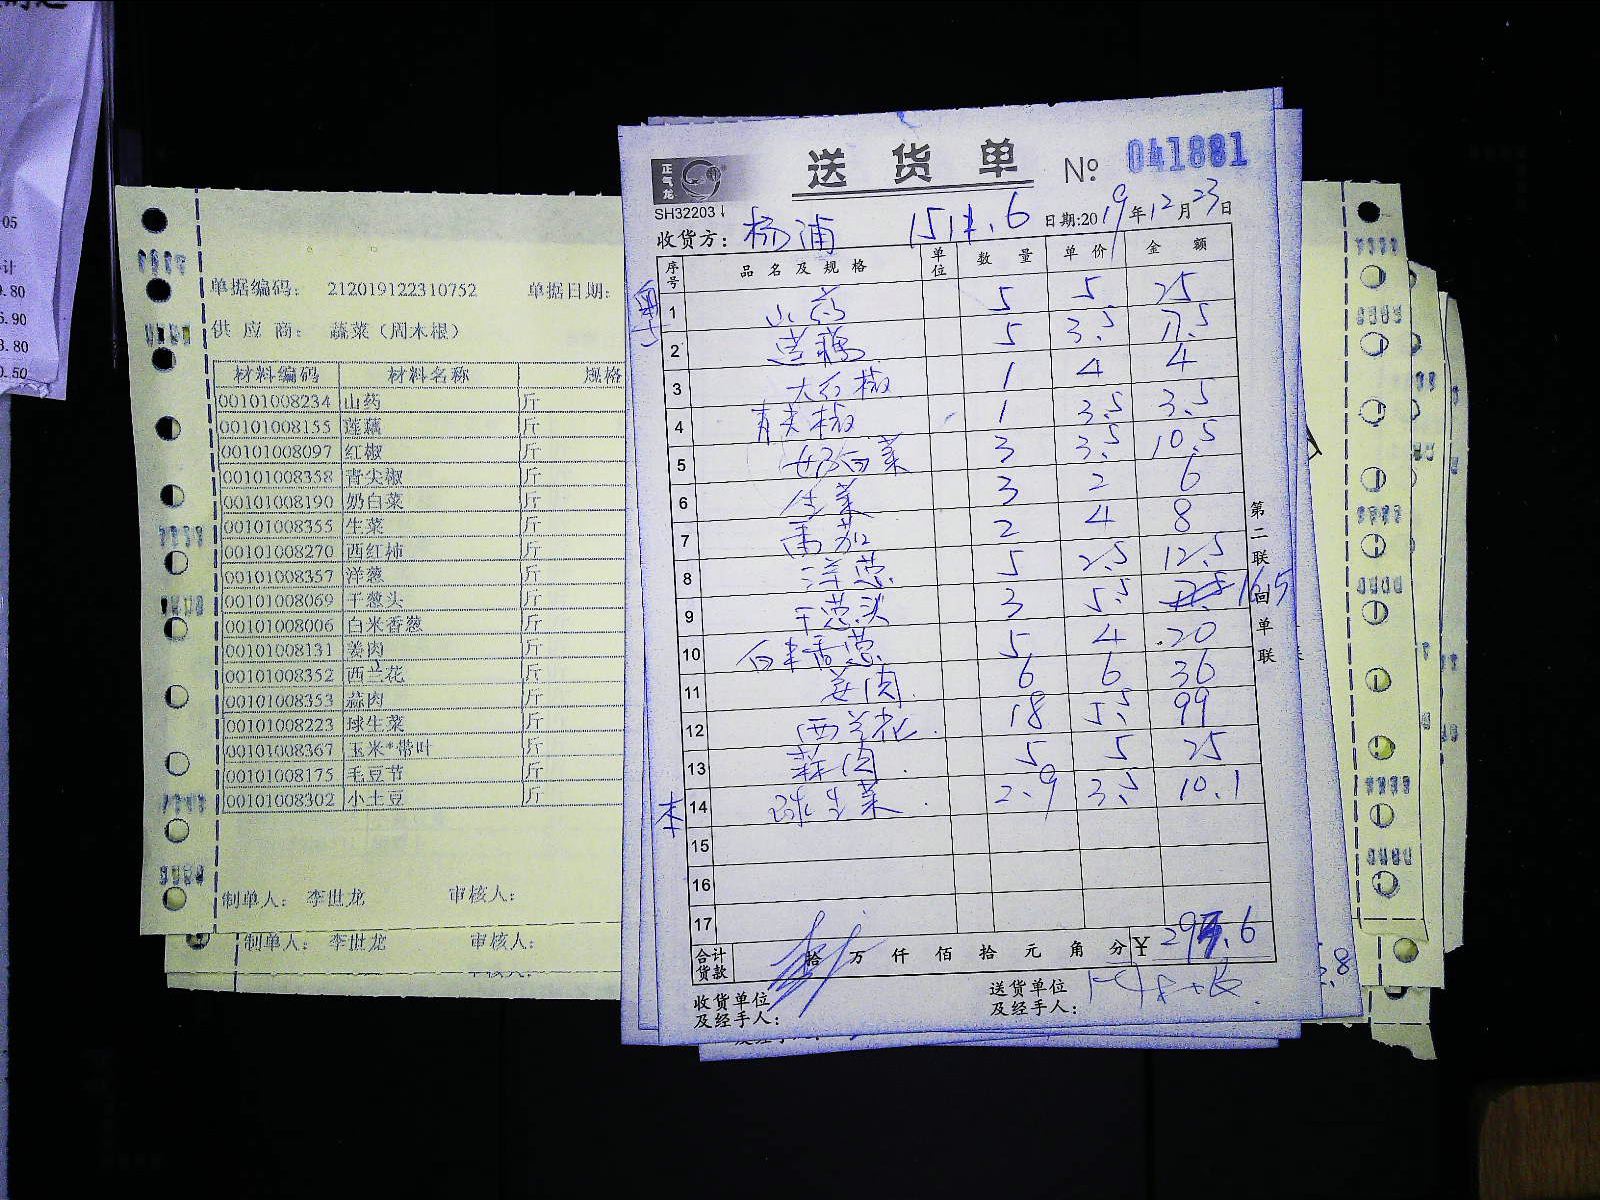 05
计
9.80
6.90
3.80
0.50
单据编码： 212019122310752 单据日期：
供 应 商： 蔬菜（周木根）
材料编码 材料名称 规格
00101008234 山药 斤
00101008155 莲藕 斤
00101008097 红椒 斤
00101008358 青尖椒 斤
00101008190 奶白菜 斤
00101008355 生菜 斤
00101008270 西红柿 斤
00101008357 洋葱 斤
00101008069 干葱头 斤
00101008006 白米香葱 斤
00101008131 姜肉 斤
00101008352 西兰花 斤
00101008353 蒜肉 斤
00101008223 球生菜 斤
00101008367 玉米*带叶 斤
00101008175 毛豆节 斤
00101008302 小土豆 斤
制单人： 李世龙 审核人：
制单人： 李世龙 审核人：
正气龙
送货单 № 041881
SH32203
收货方：杨浦 日期:2019年12月23日
序号 品名及规格 单位 数量 单价 金额
1 山药 5 5 25
2 莲藕 5 3.5 17.5
3 大红椒 1 4 4
4 青尖椒 1 3.5 3.5
5 奶白菜 3 3.5 10.5
6 生菜 3 2 6
7 番茄 2 4 8
8 洋葱 5 2.5 12.5
9 干葱头 3 5.5 16.5
10 白米香葱 5 4 20
11 姜肉 6 6 36
12 西兰花 18 5.5 99
13 蒜肉 5 5 25
14 球生菜 2.9 3.5 10.1
15
16
17
合计货款 拾 万 仟 佰 拾 元 角 分 ¥
收货单位及经手人：
送货单位及经手人：
第二联 回单联